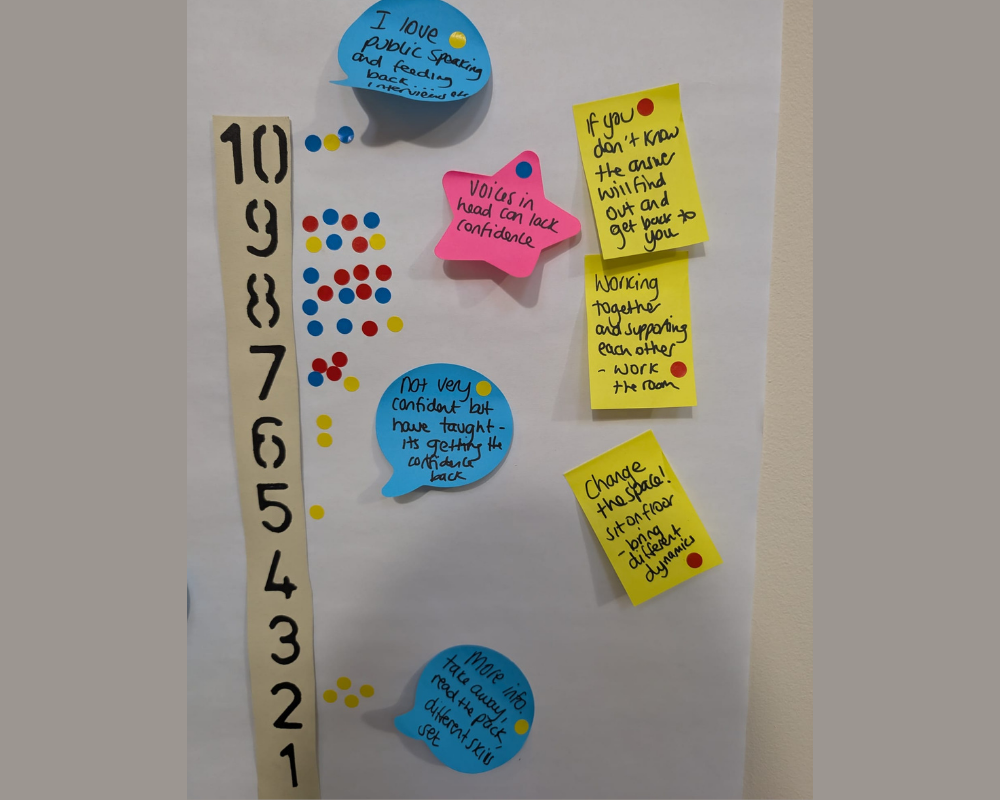 I love
public speaking
and feeding
back....
interviews etc
10
9
8
7
6
5
4
3
2
1
Voices in
head can lack
confidence
If you
don't know
the answer
will find
out and
get back to
you
Working
together
and supporting
each other
- work
the room
Not very
confident but
have taught -
its getting the
confidence
back
Change
the space!
sit on floor
- bring
different
dynamics
More info.
take away,
read the pack,
different skills
set